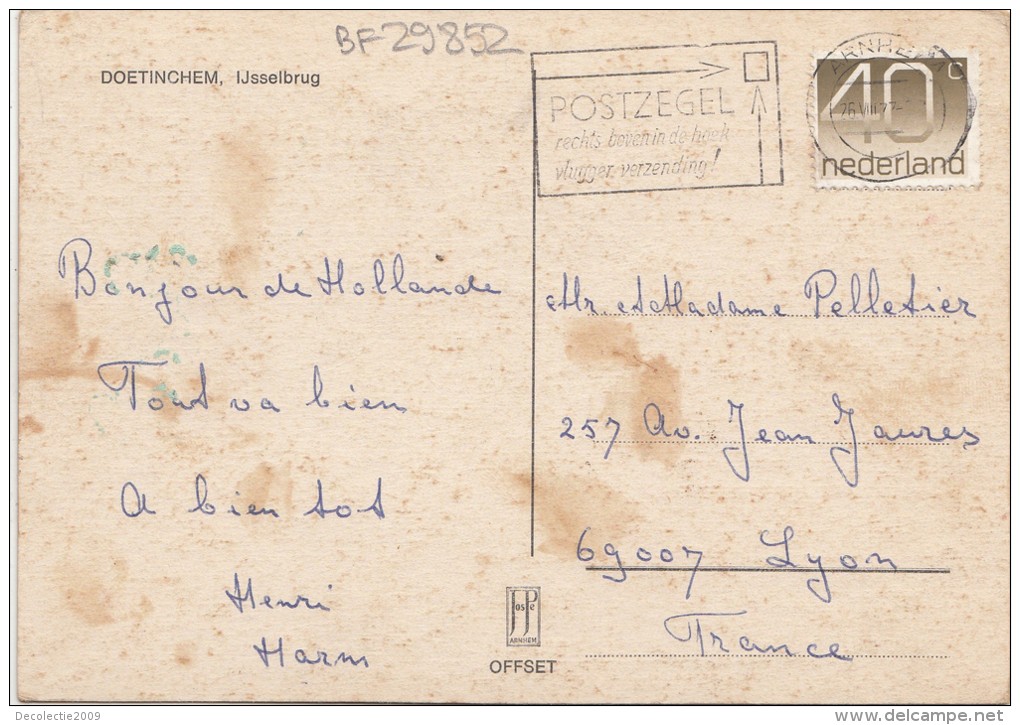 BF29852
DOETINCHEM, IJsselbrug
POSTZEGEL
rechts boven in de hoek
vlugger verzending!
ARNHEM
26.VIII.77
40c
nederland
Bonjour de Hollande
Tout va bien
A bien tot
Henri
Harm
Mr. et Madame Pelletier
257 Av. Jean Jaures
69007 Lyon
France
JosPe
ARNHEM
OFFSET
Decolectie2009
www.delcampe.net